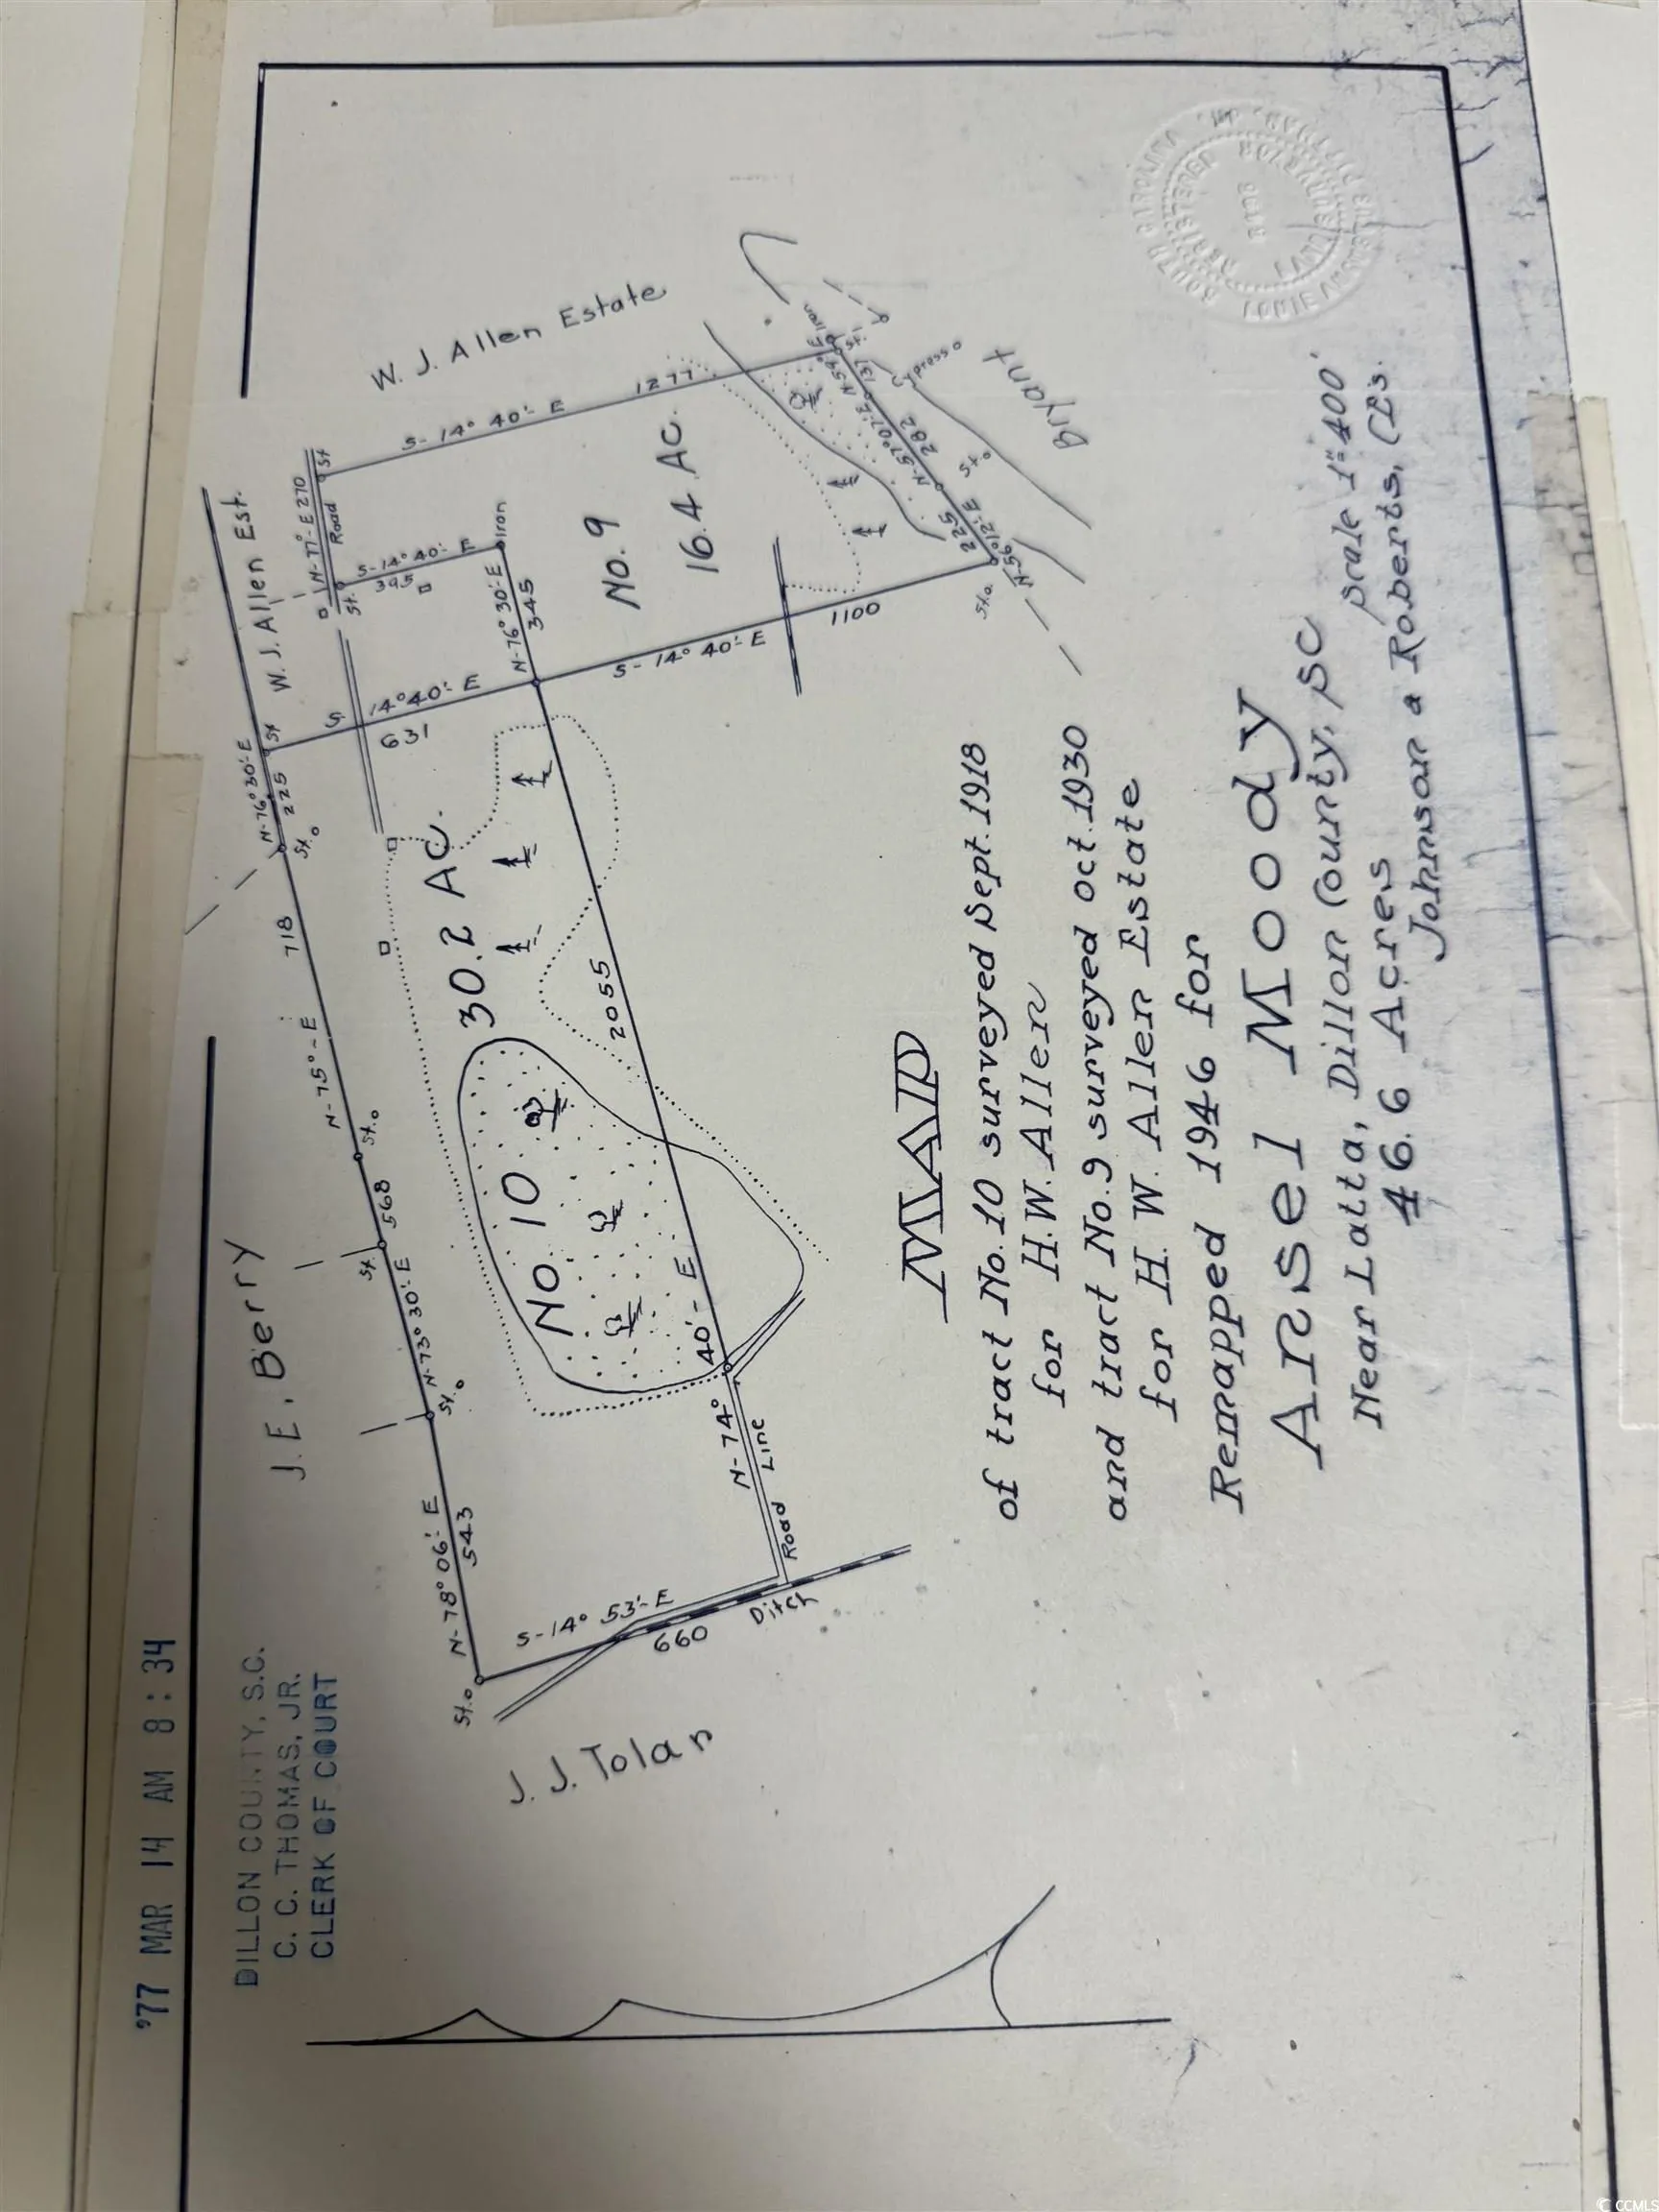 '77 MAR 14 AM 8:34
DILLON COUNTY, S.C.
C. C. THOMAS, JR.
CLERK OF COURT
J. E. Berry
W. J. Allen Est.
W. J. Allen Estate
J. J. Tolan
Bryant
St.
N-78° 06'-E
543
St.
N-73° 30'-E
St.
568
St.
N-75°-E
718
St.
N-76° 30'-E
225
St
S-14° 40'-E
631
N-77°-E 270
Road
St
St.
S-14° 40'-E
395
Iron
N-76° 30'-E
345
S-14° 40'-E
1277
No. 9
16.4 AC.
S-14° 40'-E
1100
St.
N-56° 12'-E
225
St.
N-57° 07'-E
282
137
Cypress
Iron
St.
30.2 AC.
No. 10
2055
N-74° 40'-E
Road Line
S-14° 53'-E
660
Ditch
MAP
of tract No. 10 surveyed Sept. 1918
for H. W. Allen
and tract No. 9 surveyed Oct. 1930
for H. W. Allen Estate
Remapped 1946 for
Ansel Moody
Near Latta, Dillon County, SC
46.6 Acres
scale 1"=400'
Johnson a Roberts, C.E.s.
SOUTH CAROLINA
REGISTERED
LAND SURVEYOR
© CCMLS